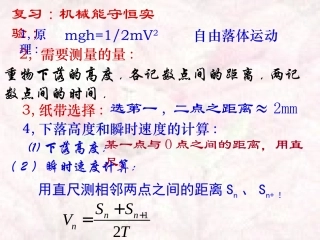 复习：机械能守恒实
验 1, 原 mgh=1/2mV² 自由落体运动
理：
2, 需要测量的量：
重物下落的高度，各记数点间的距离，两记
数点间的时间．
3, 纸带选择：选第一，二点之距离≈ 2mm
4, 下落高度和瞬时速度的计算：
⑴ 下落高度：某一点与 0 点之间的距离，用直
尺
（2）瞬时速度计算：
用直尺测相邻两点之间的距离 Sn 、 Sn+1
Vn = (Sn + Sn+1) / 2T